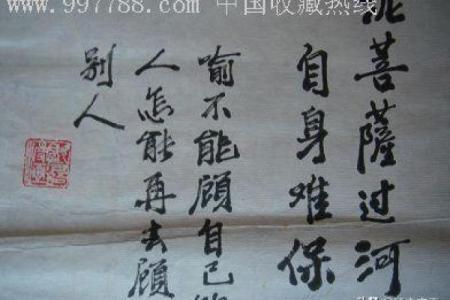 www.997788.com 中国收藏热线
泥菩萨过河
自身难保
喻不能顾自己的
人怎能再去顾
别人